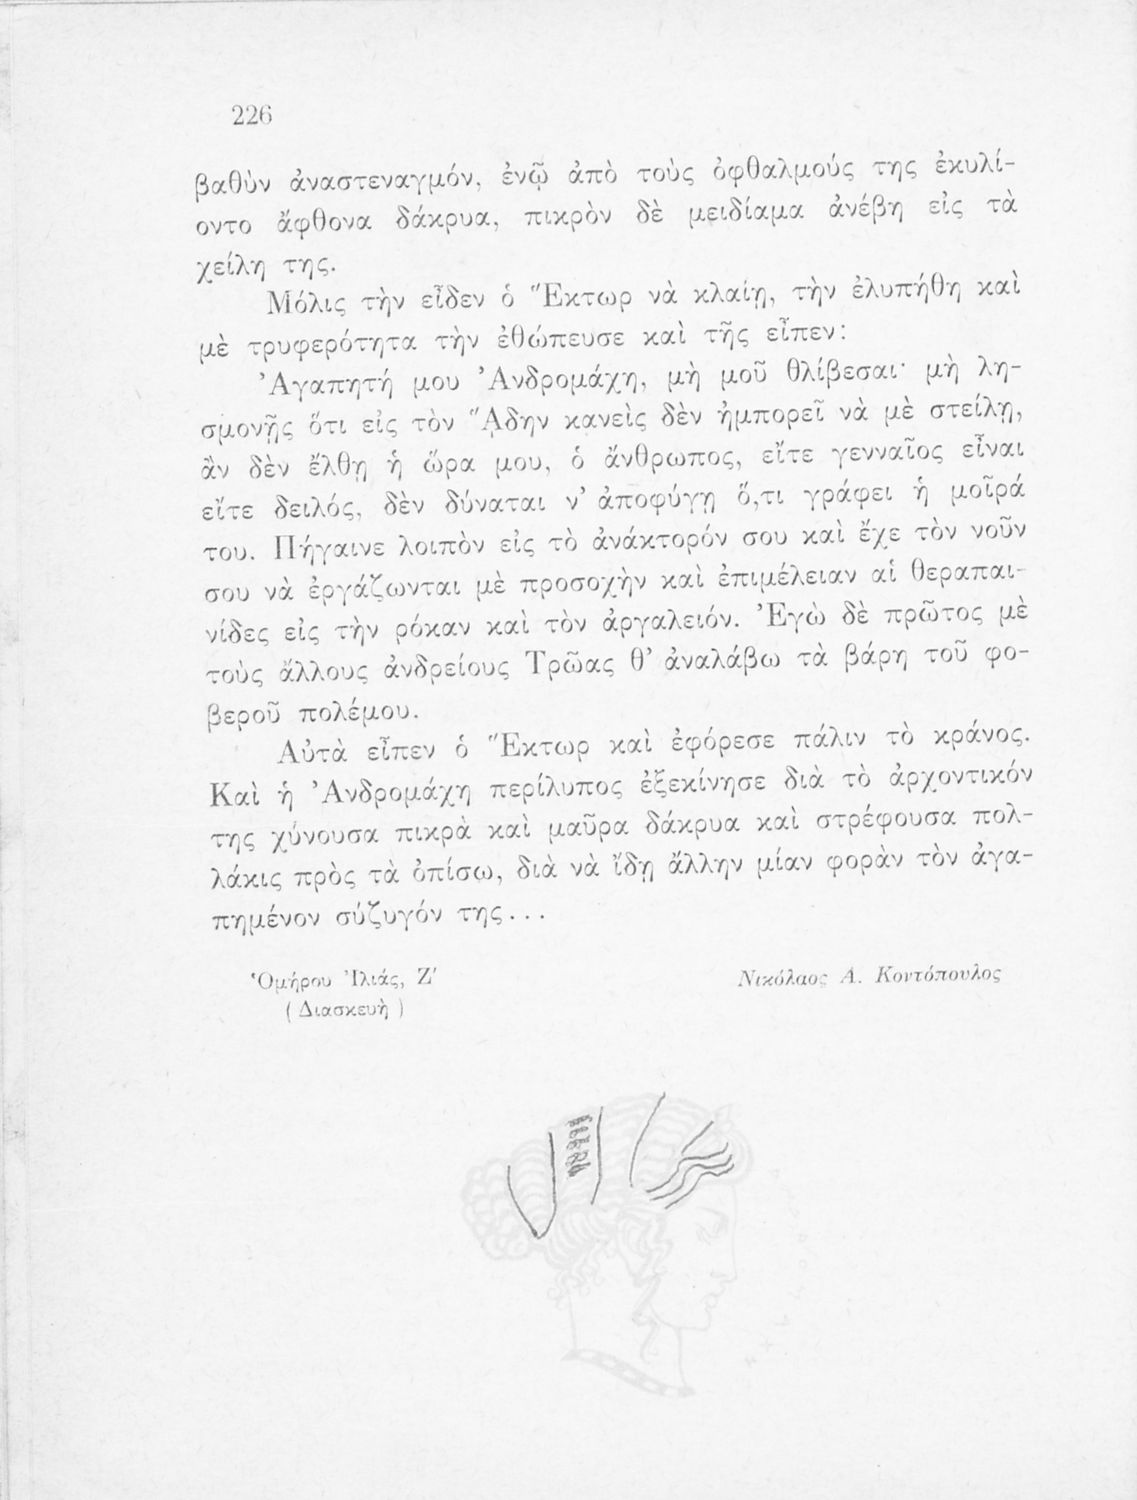 226
βαθὺν ἀναστεναγμόν, ἐνῷ ἀπὸ τοὺς ὀφθαλμούς της ἐκυλί-
οντο ἄφθονα δάκρυα, πικρὸν δὲ μειδίαμα ἀνέβη εἰς τὰ
χείλη της.
Μόλις τὴν εἶδεν ὁ Ἕκτωρ νὰ κλαίῃ, τὴν ἐλυπήθη καὶ
μὲ τρυφερότητα τὴν ἐθώπευσε καὶ τῆς εἶπεν:
Ἀγαπητή μου Ἀνδρομάχη, μὴ μοῦ θλίβεσαι· μὴ λη-
σμονῇς ὅτι εἰς τὸν ᾍδην κανεὶς δὲν ἠμπορεῖ νὰ μὲ στείλῃ,
ἂν δὲν ἔλθῃ ἡ ὥρα μου, ὁ ἄνθρωπος, εἴτε γενναῖος εἶναι
εἴτε δειλός, δὲν δύναται ν' ἀποφύγῃ ὅ,τι γράφει ἡ μοῖρά
του. Πήγαινε λοιπὸν εἰς τὸ ἀνάκτορόν σου καὶ ἔχε τὸν νοῦν
σου νὰ ἐργάζωνται μὲ προσοχὴν καὶ ἐπιμέλειαν αἱ θεραπαι-
νίδες εἰς τὴν ρόκαν καὶ τὸν ἀργαλειόν. Ἐγὼ δὲ πρῶτος μὲ
τοὺς ἄλλους ἀνδρείους Τρῶας θ' ἀναλάβω τὰ βάρη τοῦ φο-
βεροῦ πολέμου.
Αὐτὰ εἶπεν ὁ Ἕκτωρ καὶ ἐφόρεσε πάλιν τὸ κράνος.
Καὶ ἡ Ἀνδρομάχη περίλυπος ἐξεκίνησε διὰ τὸ ἀρχοντικόν
της χύνουσα πικρὰ καὶ μαῦρα δάκρυα καὶ στρέφουσα πολ-
λάκις πρὸς τὰ ὀπίσω, διὰ νὰ ἴδῃ ἄλλην μίαν φορὰν τὸν ἀγα-
πημένον σύζυγόν της...
Ὁμήρου Ἰλιάς, Ζ'
(Διασκευὴ)
Νικόλαος Α. Κοντόπουλος